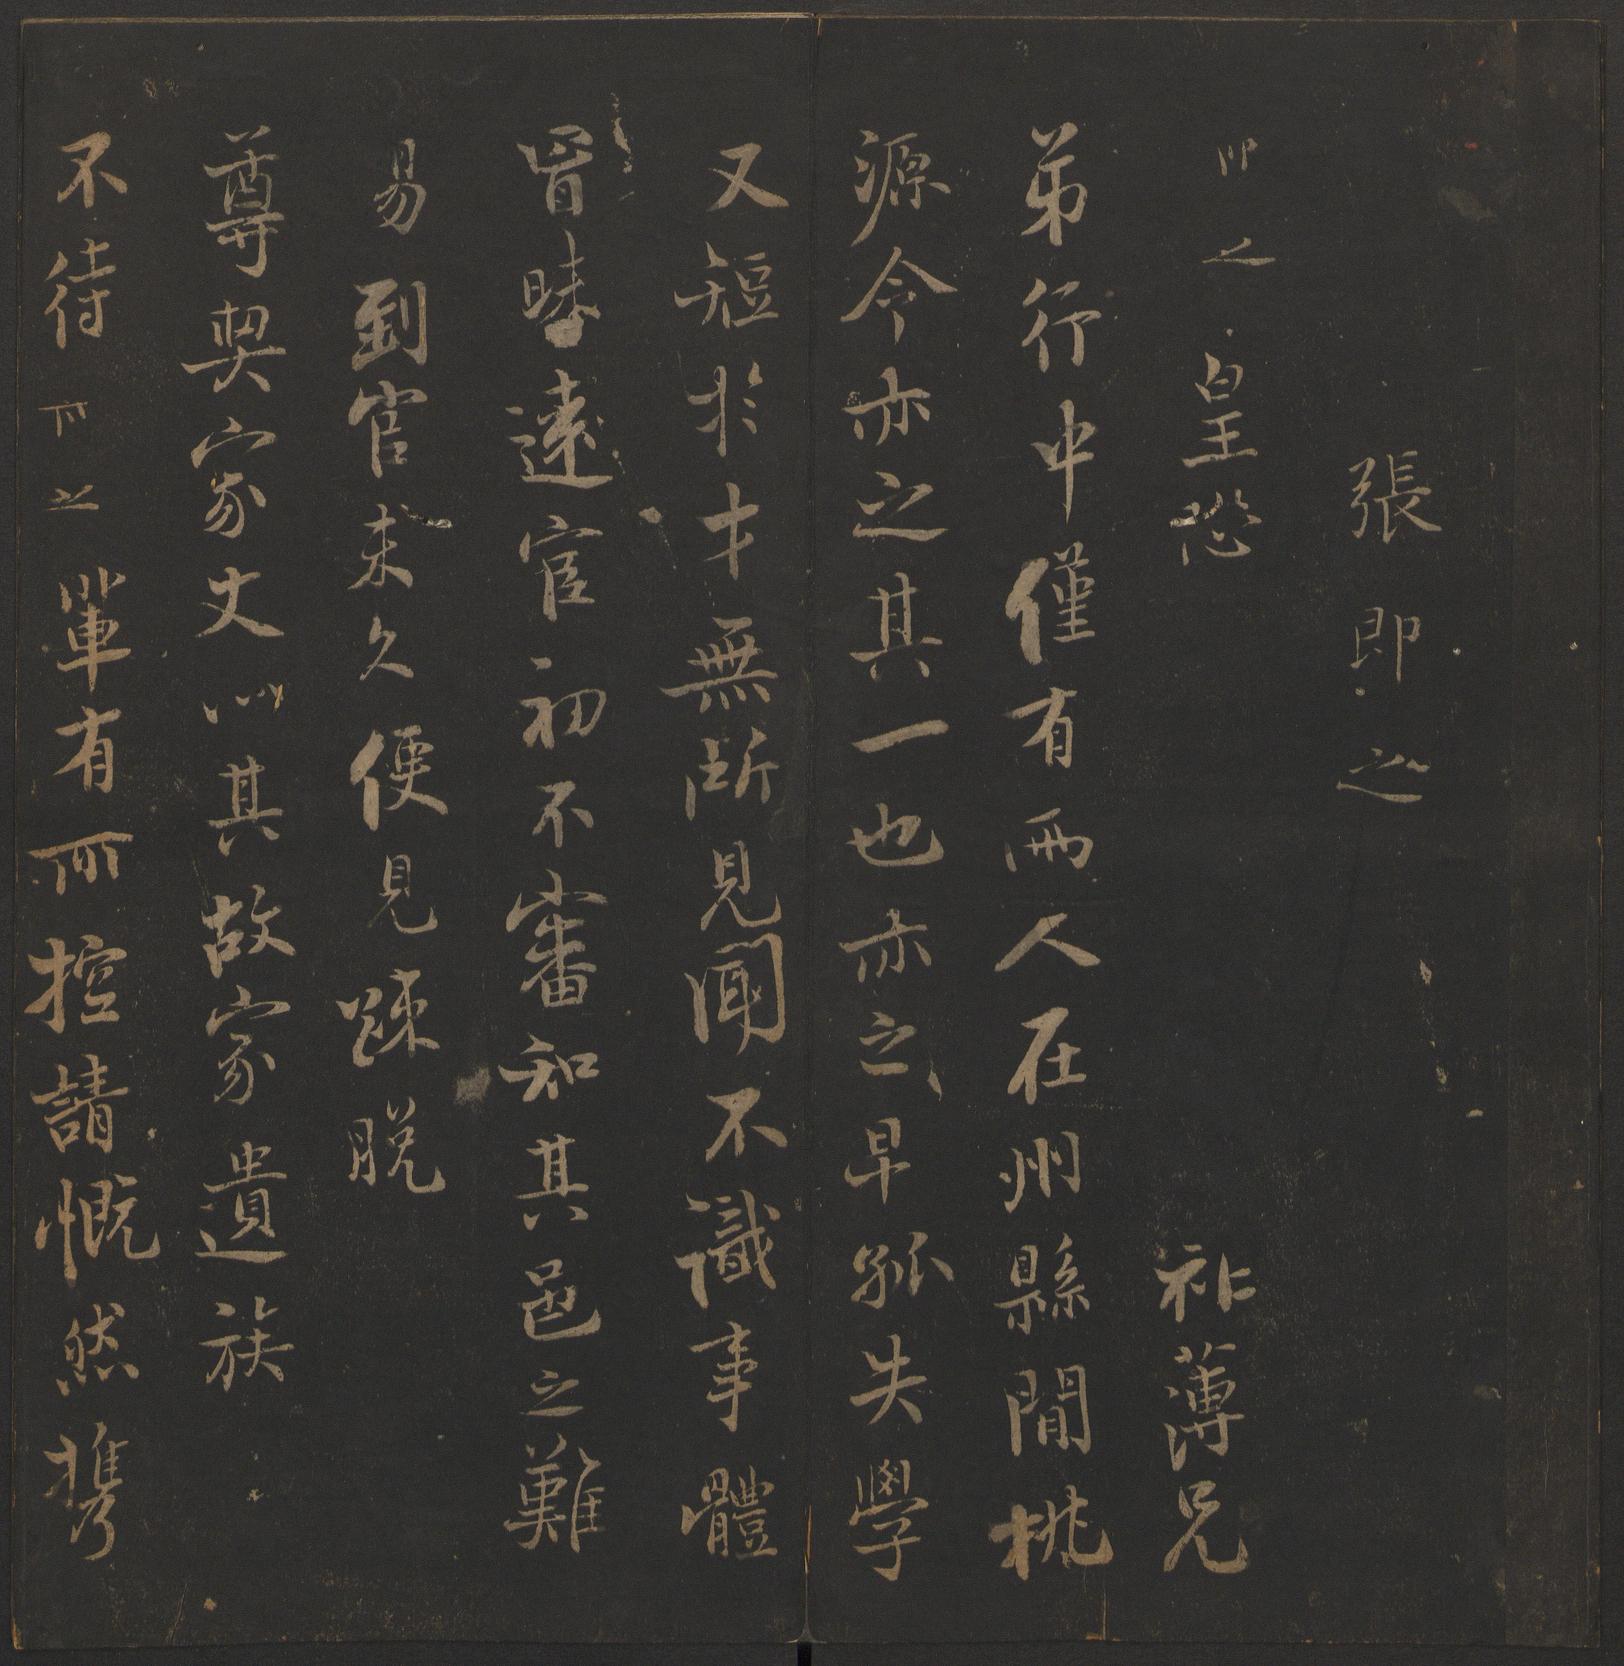 張即之
即之皇恐　祚薄兄
弟行中僅有兩人在州縣間桃
源令亦之其一也亦之早孤失學
又短於才無所見聞不識事體
冒昧遠宦初不審知其邑之難
易到官未久便見踈脫
尊契家丈以其故家遺族
不待即之輩有所控請慨然携